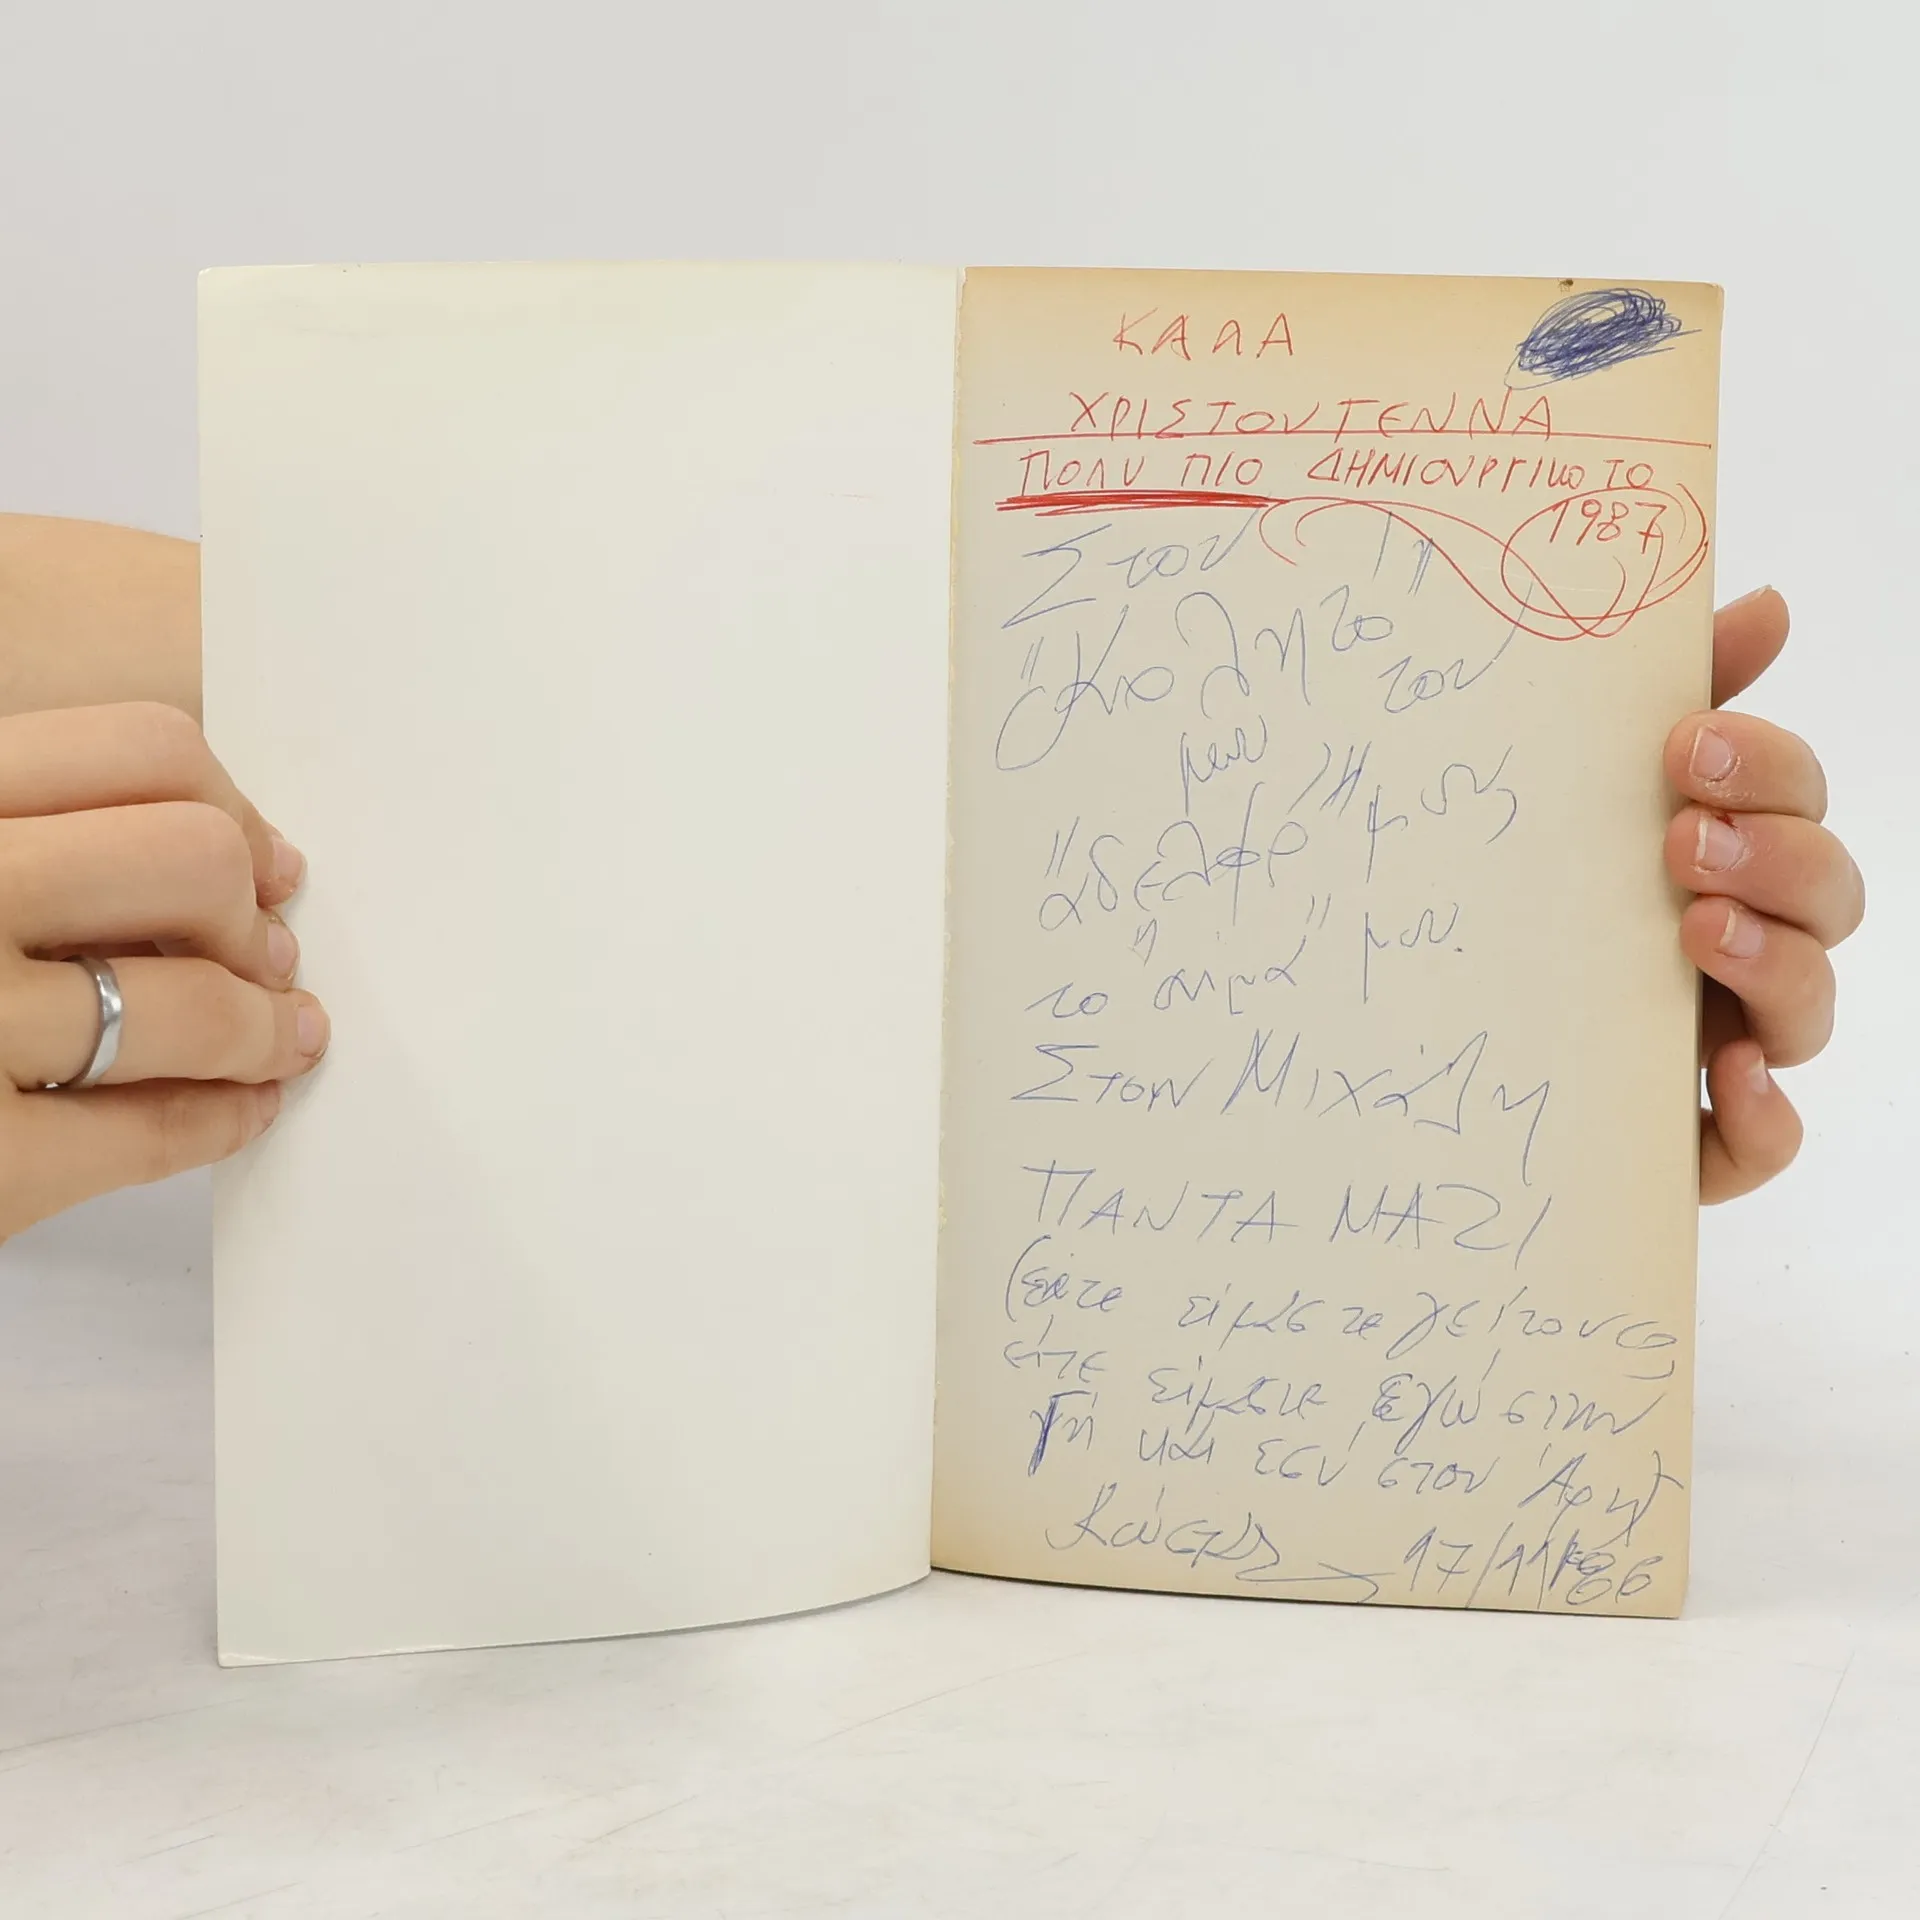 ΚΑΛΑ
ΧΡΙΣΤΟΥΓΕΝΝΑ
ΠΟΛΥ ΠΙΟ ΔΗΜΙΟΥΡΓΙΚΟ ΤΟ
1987
Στον
"Κολλητό" του
μου
"ἀδελφό" μου,
το "αἷμα" μου.
Στον Μιχάλη
ΠΑΝΤΑ ΜΑΖΙ
(εἴτε εἴμαστε γείτονες
εἴτε εἴμαστε ἐγώ στην
Γῆ και ἐσύ στον Ἄρη)
Κώστας 17/11/86